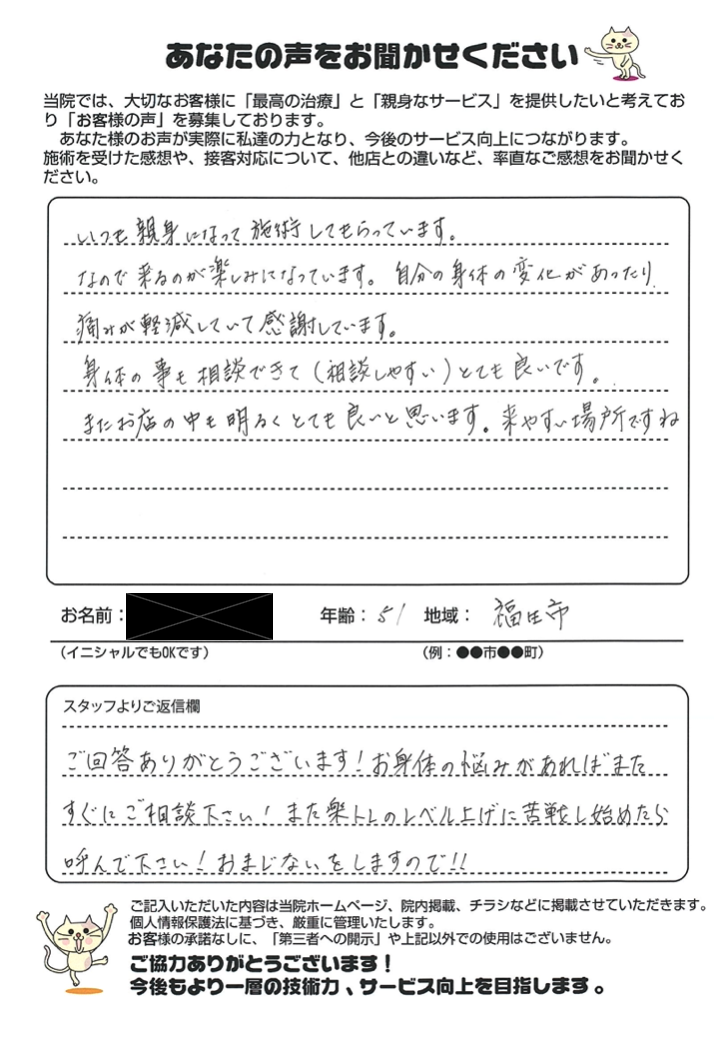 あなたの声をお聞かせください
当院では、大切なお客様に「最高の治療」と「親身なサービス」を提供したいと考えてお
り「お客様の声」を募集しております。
あなた様のお声が実際に私達の力となり、今後のサービス向上につながります。
施術を受けた感想や、接客対応について、他店との違いなど、率直なご感想をお聞かせく
ださい。
いつも親身になって施術してもらっています。
なので来るのが楽しみになっています。自分の身体の変化があったり
痛みが軽減していて感謝しています。
身体の事も相談できて(相談しやすい)とても良いです。
またお店の中も明るくとても良いと思います。来やすい場所ですね
お名前： 年齢：51 地域：福生市
（イニシャルでもOKです） （例：●●市●●町）
スタッフよりご返信欄
ご回答ありがとうございます！お身体の悩みがあればまた
すぐにご相談下さい！また楽トレのレベル上げに苦戦し始めたら
呼んで下さい！おまじないをしますので!!
ご記入いただいた内容は当院ホームページ、院内掲載、チラシなどに掲載させていただきます。
個人情報保護法に基づき、厳重に管理いたします。
お客様の承諾なしに、「第三者への開示」や上記以外での使用はございません。
ご協力ありがとうございます！
今後もより一層の技術力、サービス向上を目指します。